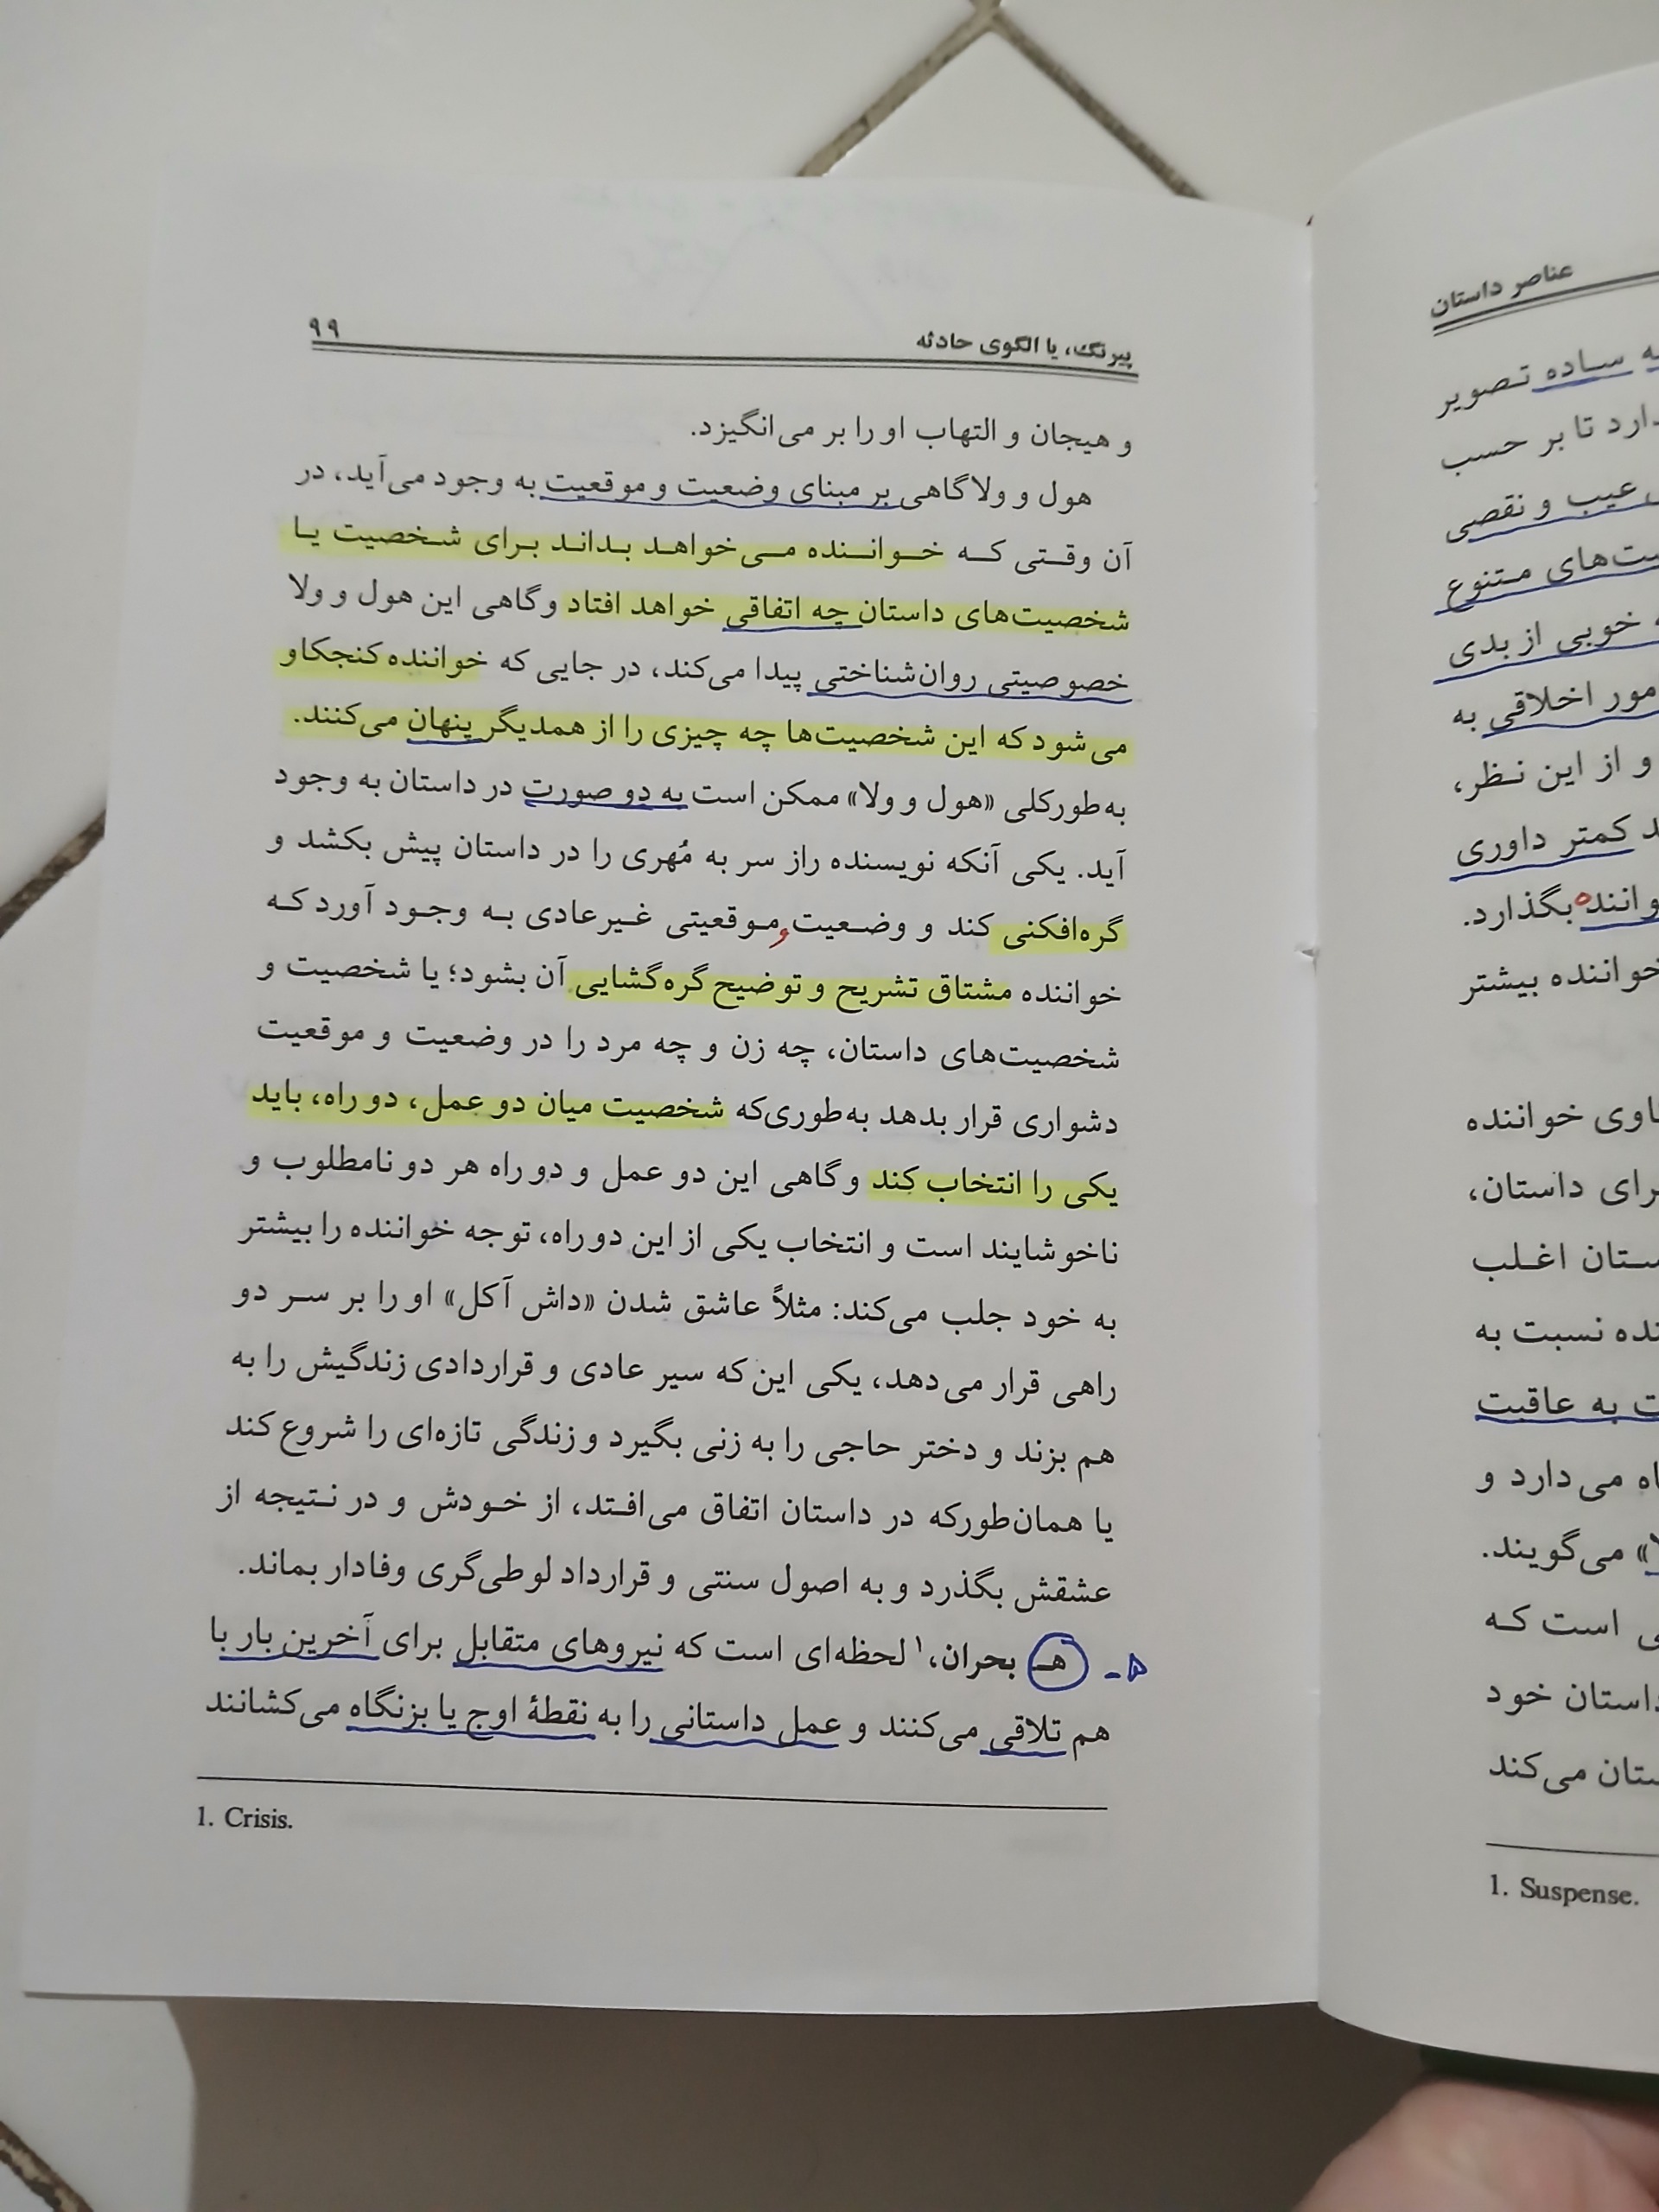 پیرنگ، یا الگوی حادثه ۹۹
و هیجان و التهاب او را بر می‌انگیزد.
هول و ولا گاهی بر مبنای وضعیت و موقعیت به وجود می‌آید، در
آن وقتی که خواننده می‌خواهد بداند برای شخصیت یا
شخصیت‌های داستان چه اتفاقی خواهد افتاد و گاهی این هول و ولا
خصوصیتی روان‌شناختی پیدا می‌کند، در جایی که خواننده کنجکاو
می‌شود که این شخصیت‌ها چه چیزی را از همدیگر پنهان می‌کنند.
به‌طورکلی «هول و ولا» ممکن است به دو صورت در داستان به وجود
آید. یکی آنکه نویسنده راز سر به مُهری را در داستان پیش بکشد و
گره‌افکنی کند و وضعیت و موقعیتی غیرعادی به وجود آورد که
خواننده مشتاق تشریح و توضیح گره‌گشایی آن بشود؛ یا شخصیت و
شخصیت‌های داستان، چه زن و چه مرد را در وضعیت و موقعیت
دشواری قرار بدهد به‌طوری‌که شخصیت میان دو عمل، دو راه، باید
یکی را انتخاب کند و گاهی این دو عمل و دو راه هر دو نامطلوب و
ناخوشایند است و انتخاب یکی از این دو راه، توجه خواننده را بیشتر
به خود جلب می‌کند: مثلاً عاشق شدن «داش آکل» او را بر سر دو
راهی قرار می‌دهد، یکی این‌که سیر عادی و قراردادی زندگیش را به
هم بزند و دختر حاجی را به زنی بگیرد و زندگی تازه‌ای را شروع کند
یا همان‌طورکه در داستان اتفاق می‌افتد، از خودش و در نتیجه از
عشقش بگذرد و به اصول سنتی و قرارداد لوطی‌گری وفادار بماند.
۵- هـ بحران،۱ لحظه‌ای است که نیروهای متقابل برای آخرین بار با
هم تلاقی می‌کنند و عمل داستانی را به نقطهٔ اوج یا بزنگاه می‌کشانند
1. Crisis.
عناصر داستان
ساده تصویر
تا بر حسب
عیب و نقصی
متنوع
خوبی از بدی
اخلاقی به
و از این نظر،
کمتر داوری
بگذارد.
خواننده بیشتر
خواننده
داستان،
اغلب
نسبت به
به عاقبت
می‌دارد و
می‌گویند.
است که
داستان خود
می‌کند
1. Suspense.